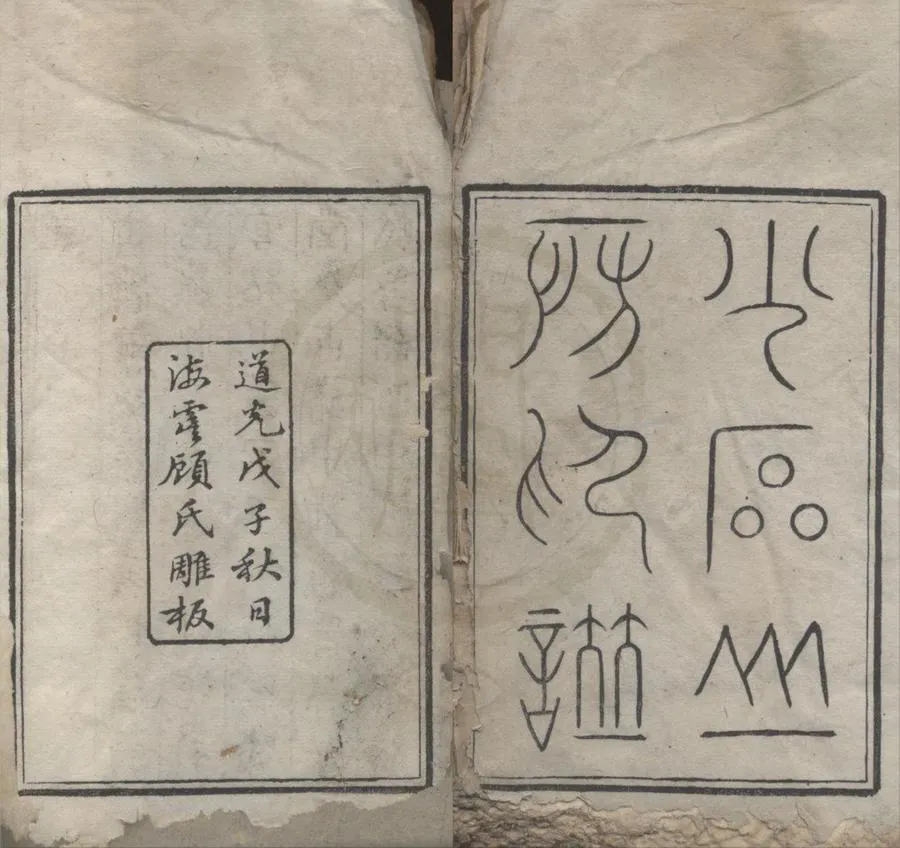 小石山
房印譜
道光戊子秋日
海虞顧氏雕板